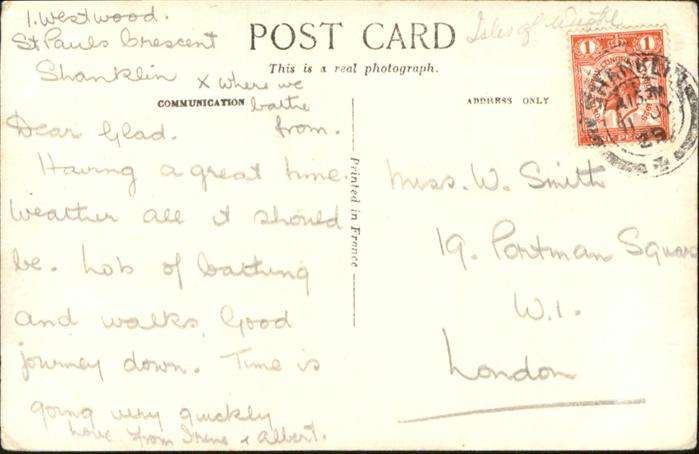 1. Westwood.
St Pauls Crescent
Shanklin
x where we
bathe
from.
POST CARD
Isle of Wight
This is a real photograph.
COMMUNICATION
ADDRESS ONLY
Dear Glad.
Having a great time.
Weather all it should
be. Lots of bathing
and walks, Good
journey down. Time is
going very quickly
Love from Irene & Albert.
Printed in France
Miss. W. Smith
19. Portman Square
W.1.
London
1 1
SHANKLIN
29